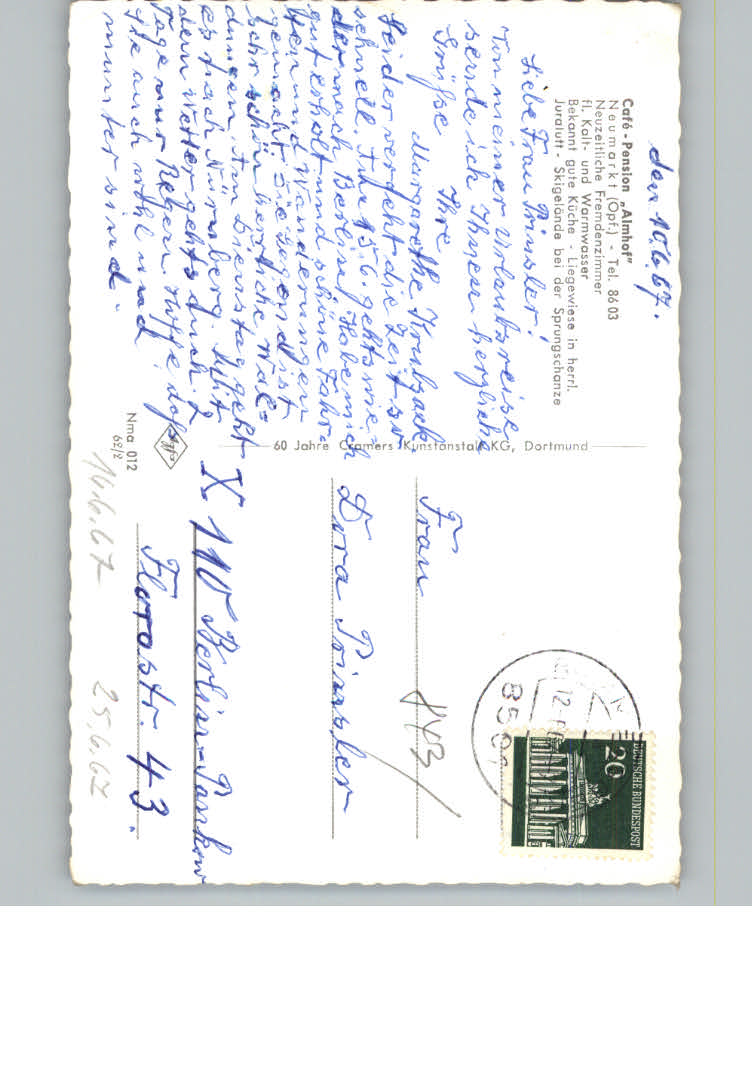 den 10.6.67.
Café - Pension „Almhof"
Neumarkt (Opf.) - Tel. 8603
Neuzeitliche Fremdenzimmer
fl. Kalt- und Warmwasser
Bekannt gute Küche - Liegewiese in herrl.
Juraluft - Skigelände bei der Sprungschanze
Liebe Frau Prinsler!
Von meiner Urlaubsreise
sende ich Ihnen herzliche
Grüße Ihre
Margarethe
Leider vergeht die Zeit so
schnell. Am 15.6. gehts wie-
der nach Berlin. Habe mich
gut erholt und schöne Fahr-
ten und Wanderungen
gemacht. Die Gegend ist
sehr schön herrliche Wal-
dungen. Am Dienstag geht
es nach Nürnberg. Mit
dem Wetter gehts auch. 2
Tage nur Regen. Hoffe daß
Sie auch wohl und
munter sind.
60 Jahre Cramers Kunstanstalt KG, Dortmund
Nma 012
62/2
Frau
Dora Prinsler
X 110 Berlin-Pankow
Florastr. 43.
443
14.6.67
25.6.67
DEUTSCHE BUNDESPOST
20